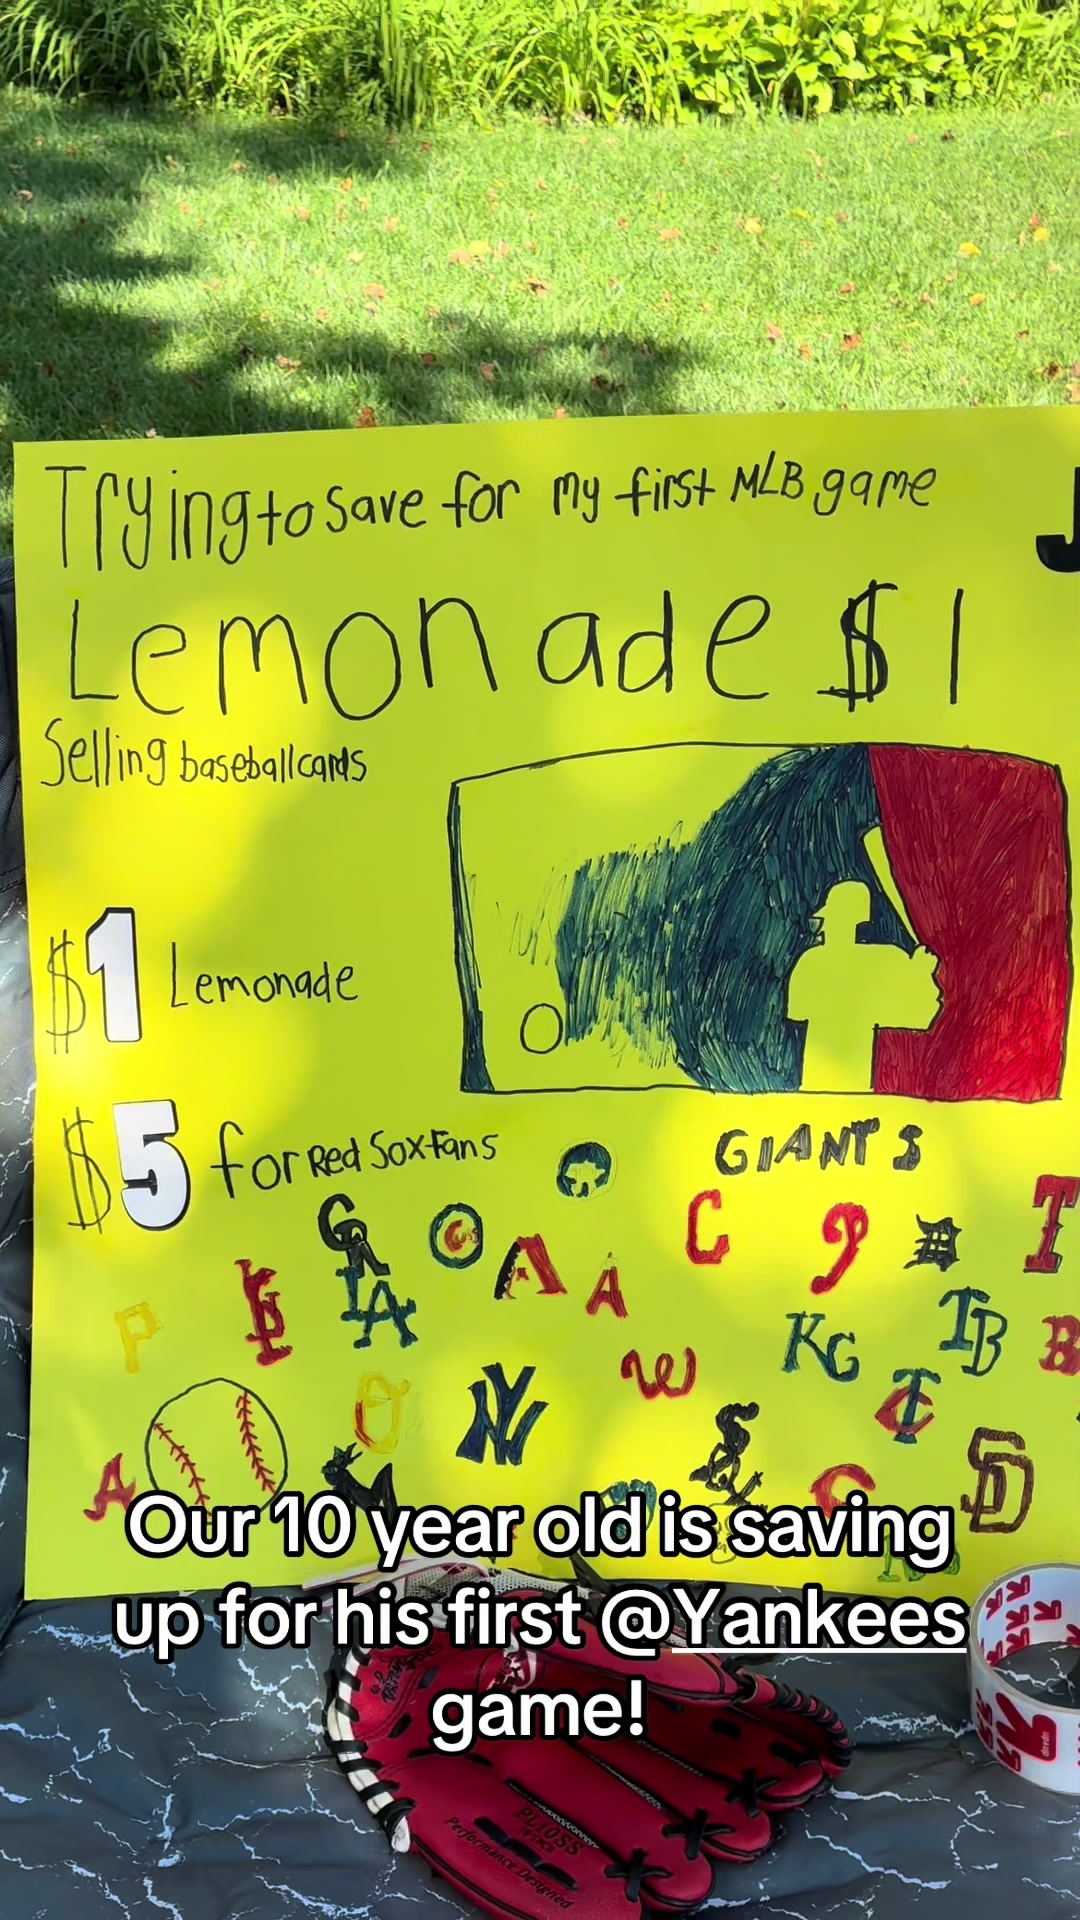 Trying to save for my first MLB game
J
Lemonade $1
Selling baseball cards
$1 Lemonade
$5 for Red Sox fans
GIANTS
C
P
T
C
A
A
LA
P
KC
TB
B
W
O
NY
TC
SD
A
C
Our 10 year old is saving
up for his first @Yankees
game!
PLJOSS
Performance Designed